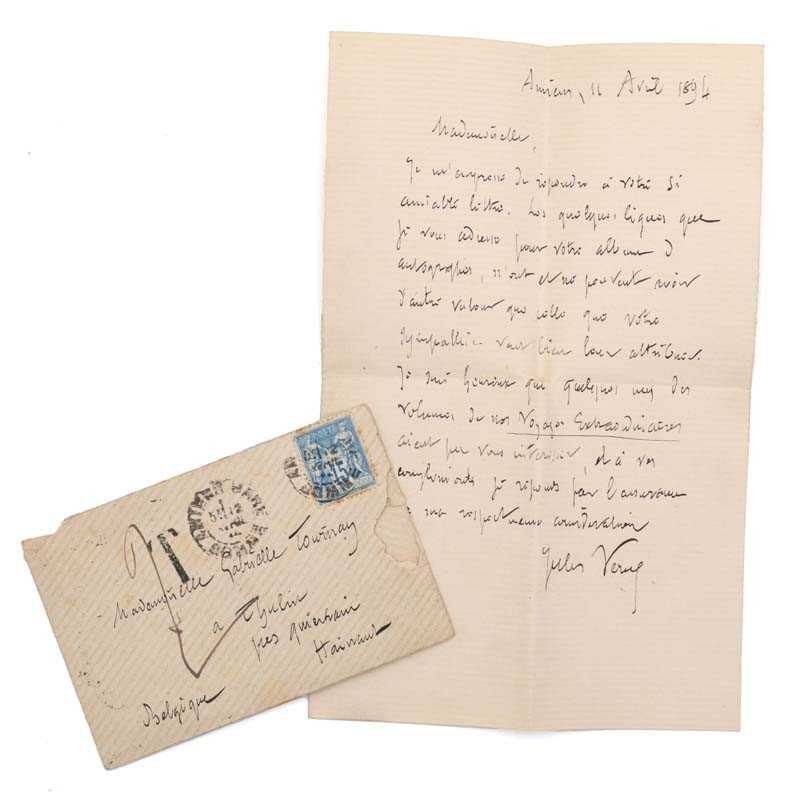 Amiens, 11 Avril 1894
Mademoiselle,
Je m'empresse de répondre à votre si
aimable lettre. Les quelques lignes que
je vous adresse pour votre album d'
autographes, n'ont et ne peuvent avoir
d'autre valeur que celle que votre
sympathie veut bien leur attribuer.
Je suis heureux que quelques uns des
volumes de nos Voyages Extraordinaires
aient pu vous intéresser, et à vos
compliments je réponds par l'assurance
de ma respectueuse considération
Jules Verne
15
T
Mademoiselle Gabrielle Tournay
à Thulin
près Quiévrain
Hainaut
Belgique